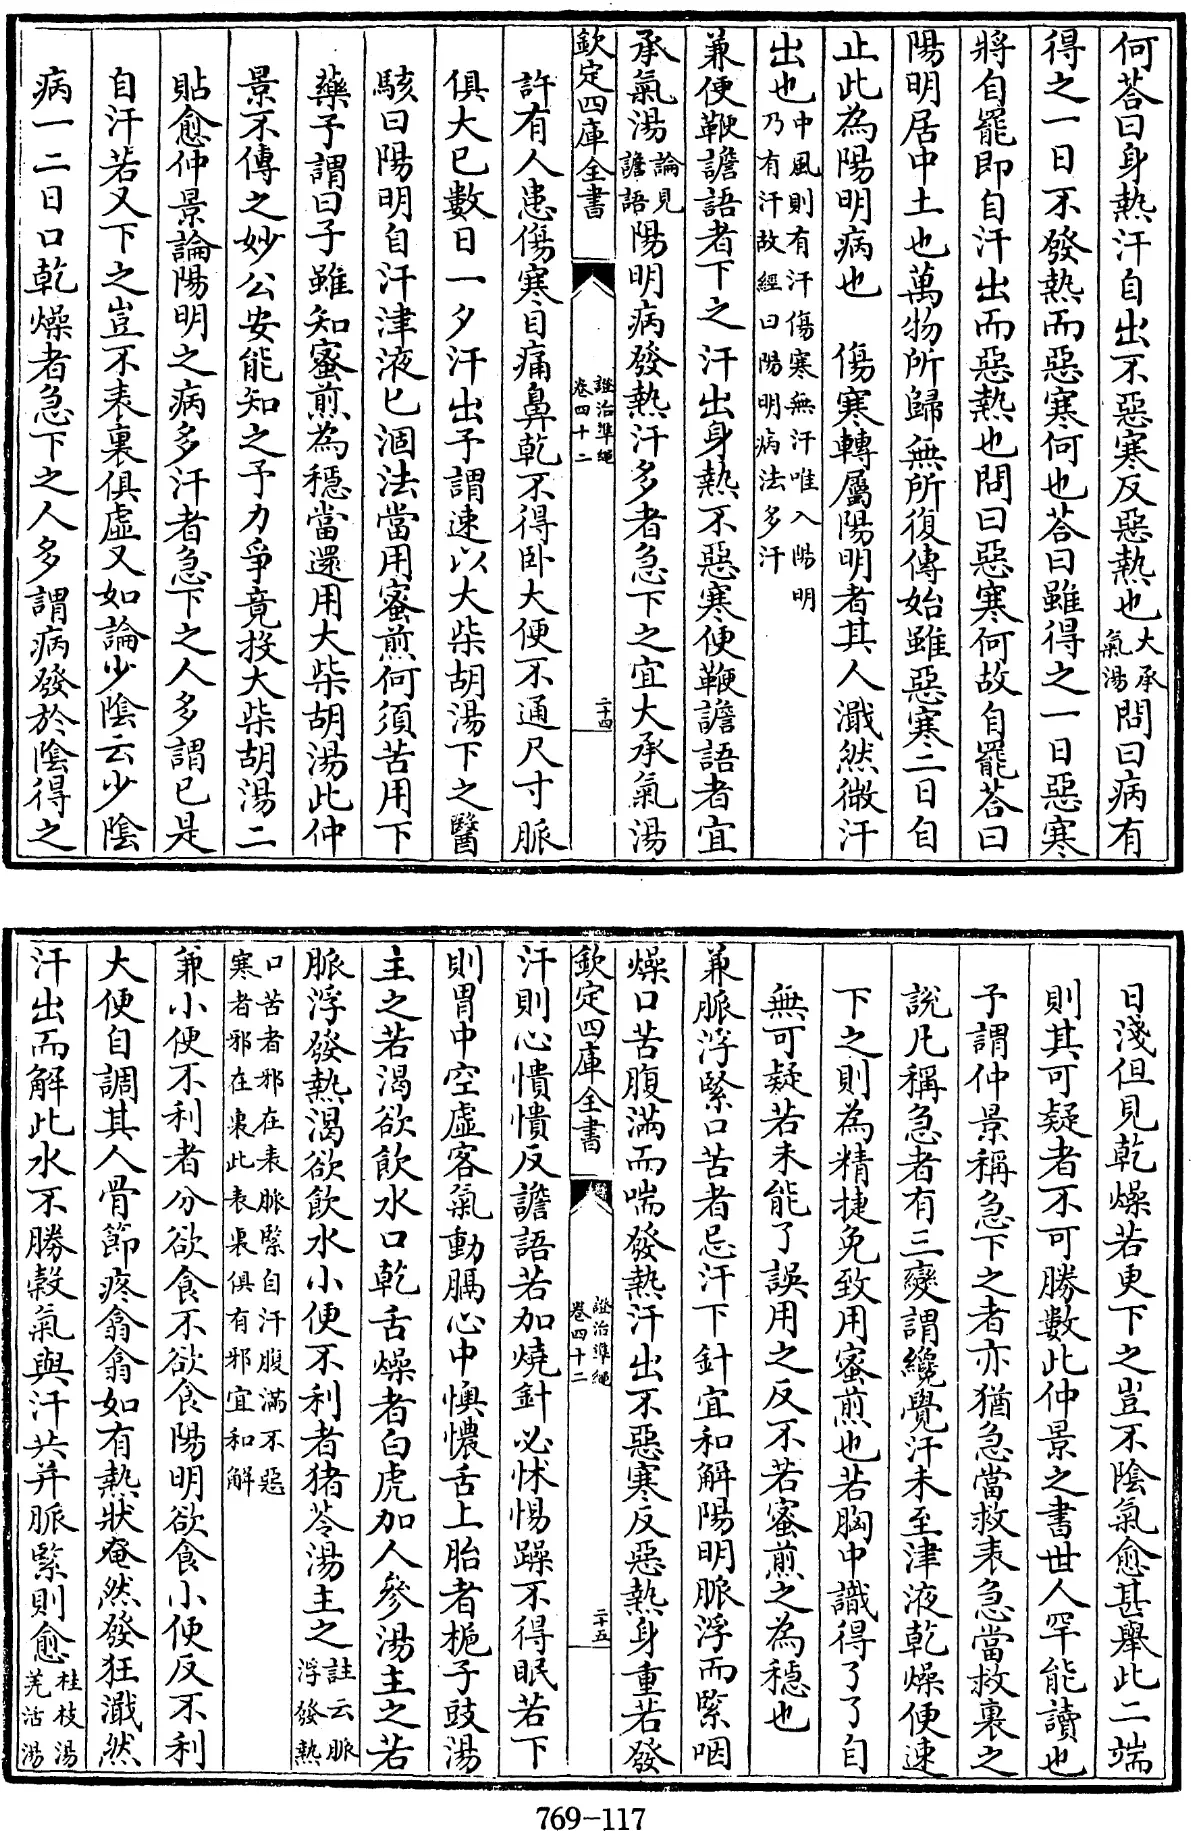 何荅曰身熱汗自出不惡寒反惡熱也大承氣湯問曰病有
得之一日不發熱而惡寒何也荅曰雖得之一日惡寒
將自罷即自汗出而惡熱也問曰惡寒何故自罷荅曰
陽明居中土也萬物所歸無所復傳始雖惡寒二日自
止此為陽明病也　傷寒轉屬陽明者其人濈然微汗
出也中風則有汗傷寒無汗唯入陽明乃有汗故經曰陽明病法多汗
兼便鞕譫語者下之　汗出身熱不惡寒便鞕譫語者宜
承氣湯論見譫語陽明病發熱汗多者急下之宜大承氣湯
欽定四庫全書
證治準繩
卷四十二
二十四
許有人患傷寒目痛鼻乾不得卧大便不通尺寸脈
俱大已數日一夕汗出予謂速以大柴胡湯下之醫
駭曰陽明自汗津液已涸法當用蜜煎何須苦用下
藥予謂曰子雖知蜜煎為穩當還用大柴胡湯此仲
景不傳之妙公安能知之予力爭竟投大柴胡湯二
貼愈仲景論陽明之病多汗者急下之人多謂已是
自汗若又下之豈不表裏俱虛又如論少陰云少陰
病一二日口乾燥者急下之人多謂病發於陰得之
日淺但見乾燥若更下之豈不陰氣愈甚舉此二端
則其可疑者不可勝數此仲景之書世人罕能讀也
予謂仲景稱急下之者亦猶急當救表急當救裏之
說凡稱急者有三變謂纔覺汗未至津液乾燥便速
下之則為精捷免致用蜜煎也若胸中識得了了自
無可疑若未能了誤用之反不若蜜煎之為穩也
兼脈浮緊口苦者忌汗下針宜和解陽明脈浮而緊咽
燥口苦腹滿而喘發熱汗出不惡寒反惡熱身重若發
欽定四庫全書
證治準繩
卷四十二
二十五
汗則心憒憒反譫語若加燒針必怵惕躁不得眠若下
則胃中空虛客氣動膈心中懊憹舌上胎者梔子豉湯
主之若渴欲飲水口乾舌燥者白虎加人參湯主之若
脈浮發熱渴欲飲水小便不利者猪苓湯主之註云脈浮發熱
口苦者邪在表脈緊自汗腹滿不惡寒者邪在裏此表裏俱有邪宜和解
兼小便不利者分欲食不欲食陽明欲食小便反不利
大便自調其人骨節疼翕翕如有熱狀奄然發狂濈然
汗出而解此水不勝穀氣與汗共并脈緊則愈桂枝湯羌活湯
769-117